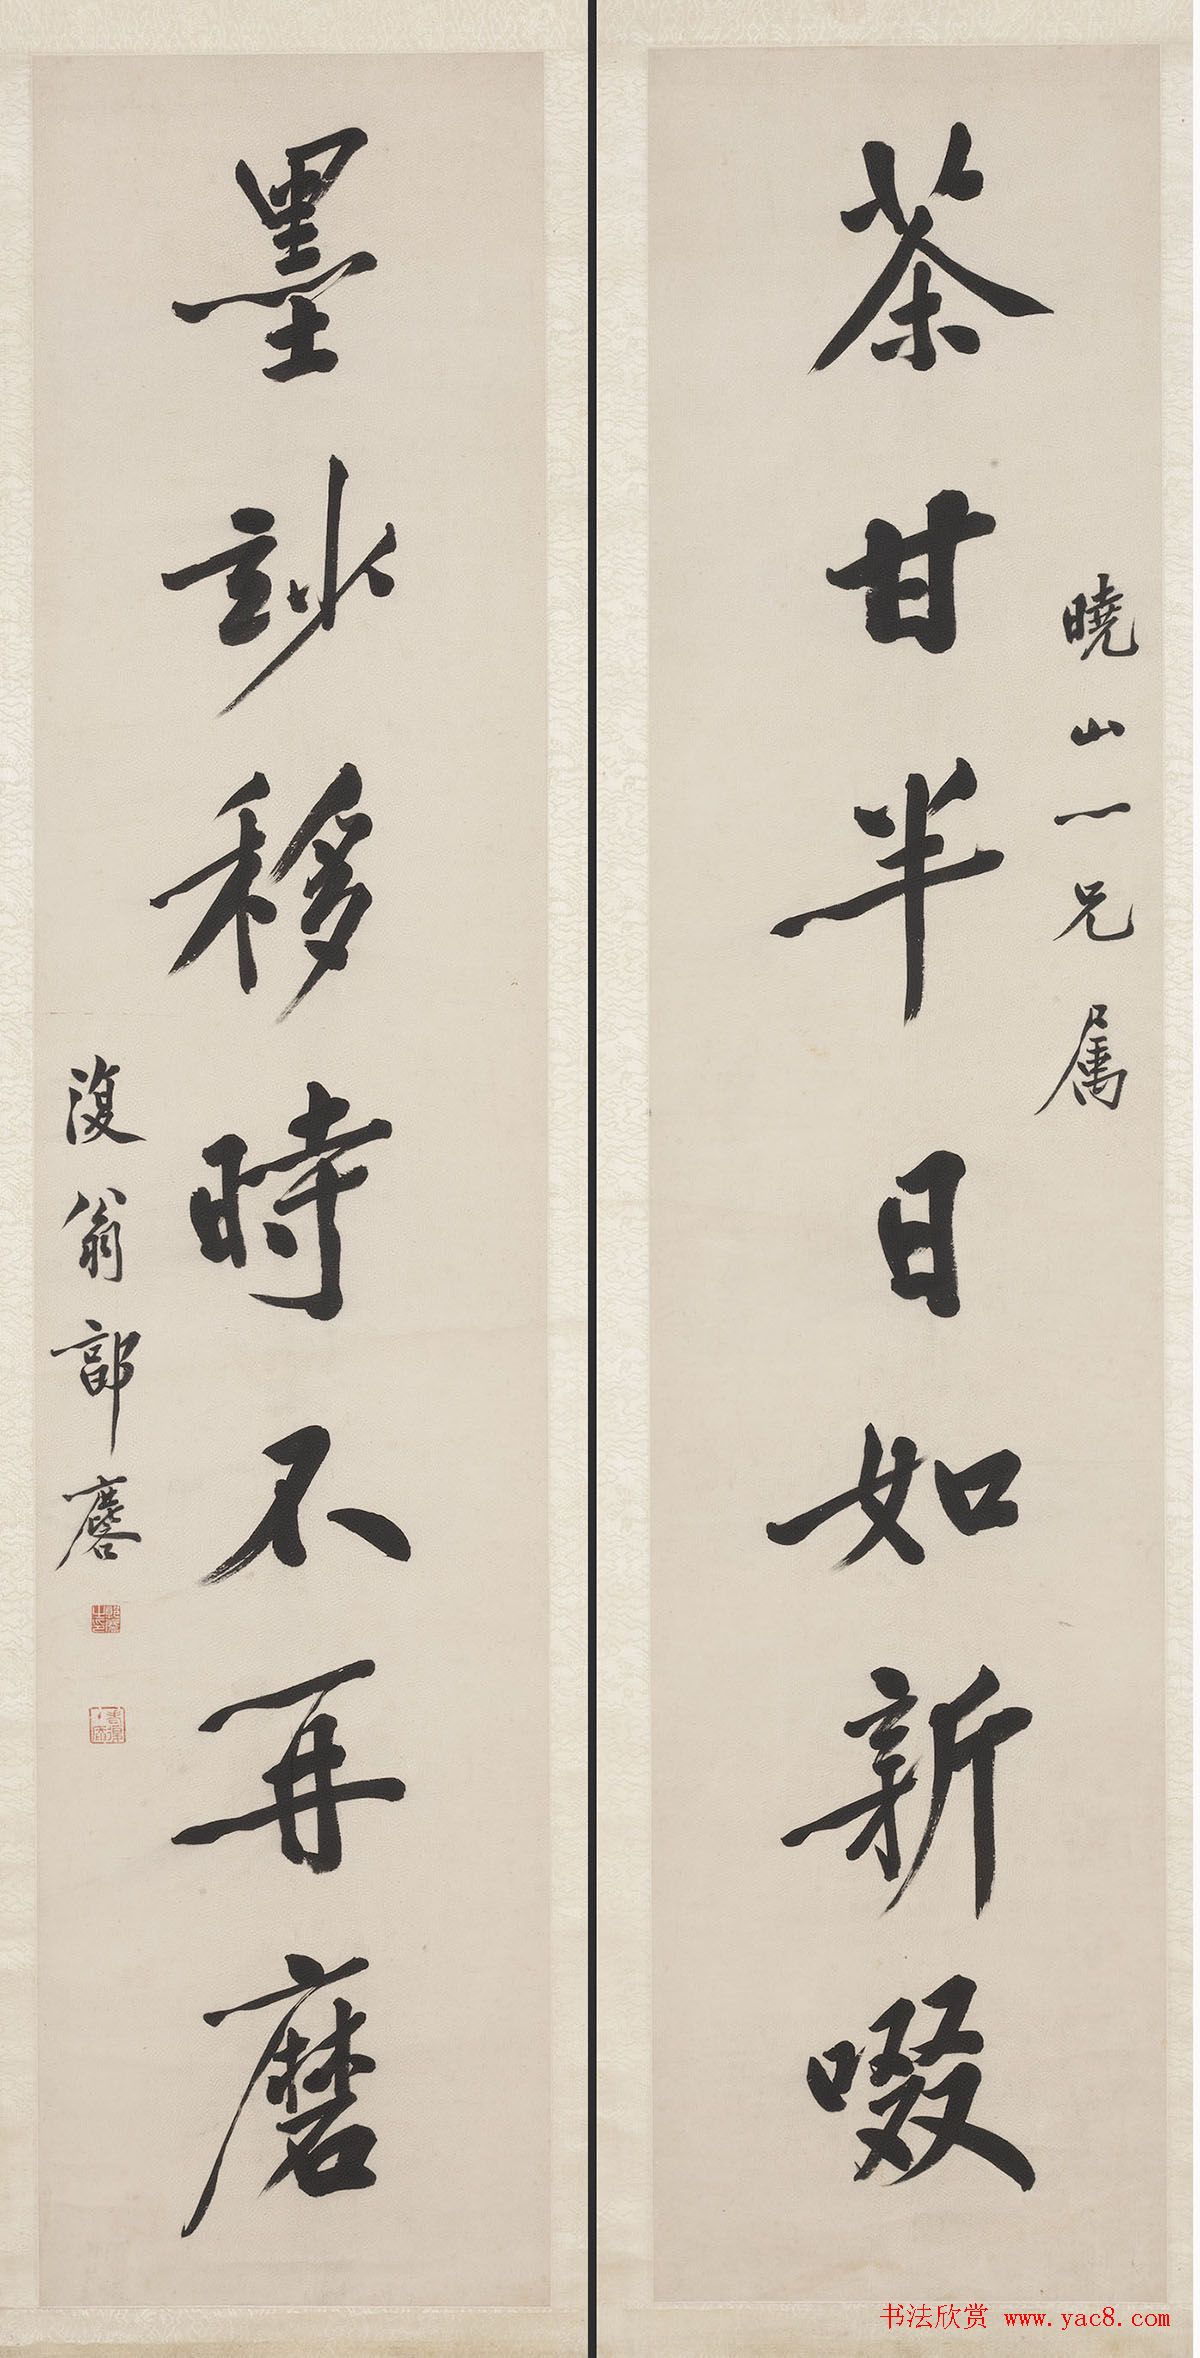 曉山兄属
茶甘半日如新啜
墨玅移時不再磨
復翁郭麐
书法欣赏 www.yac8.com